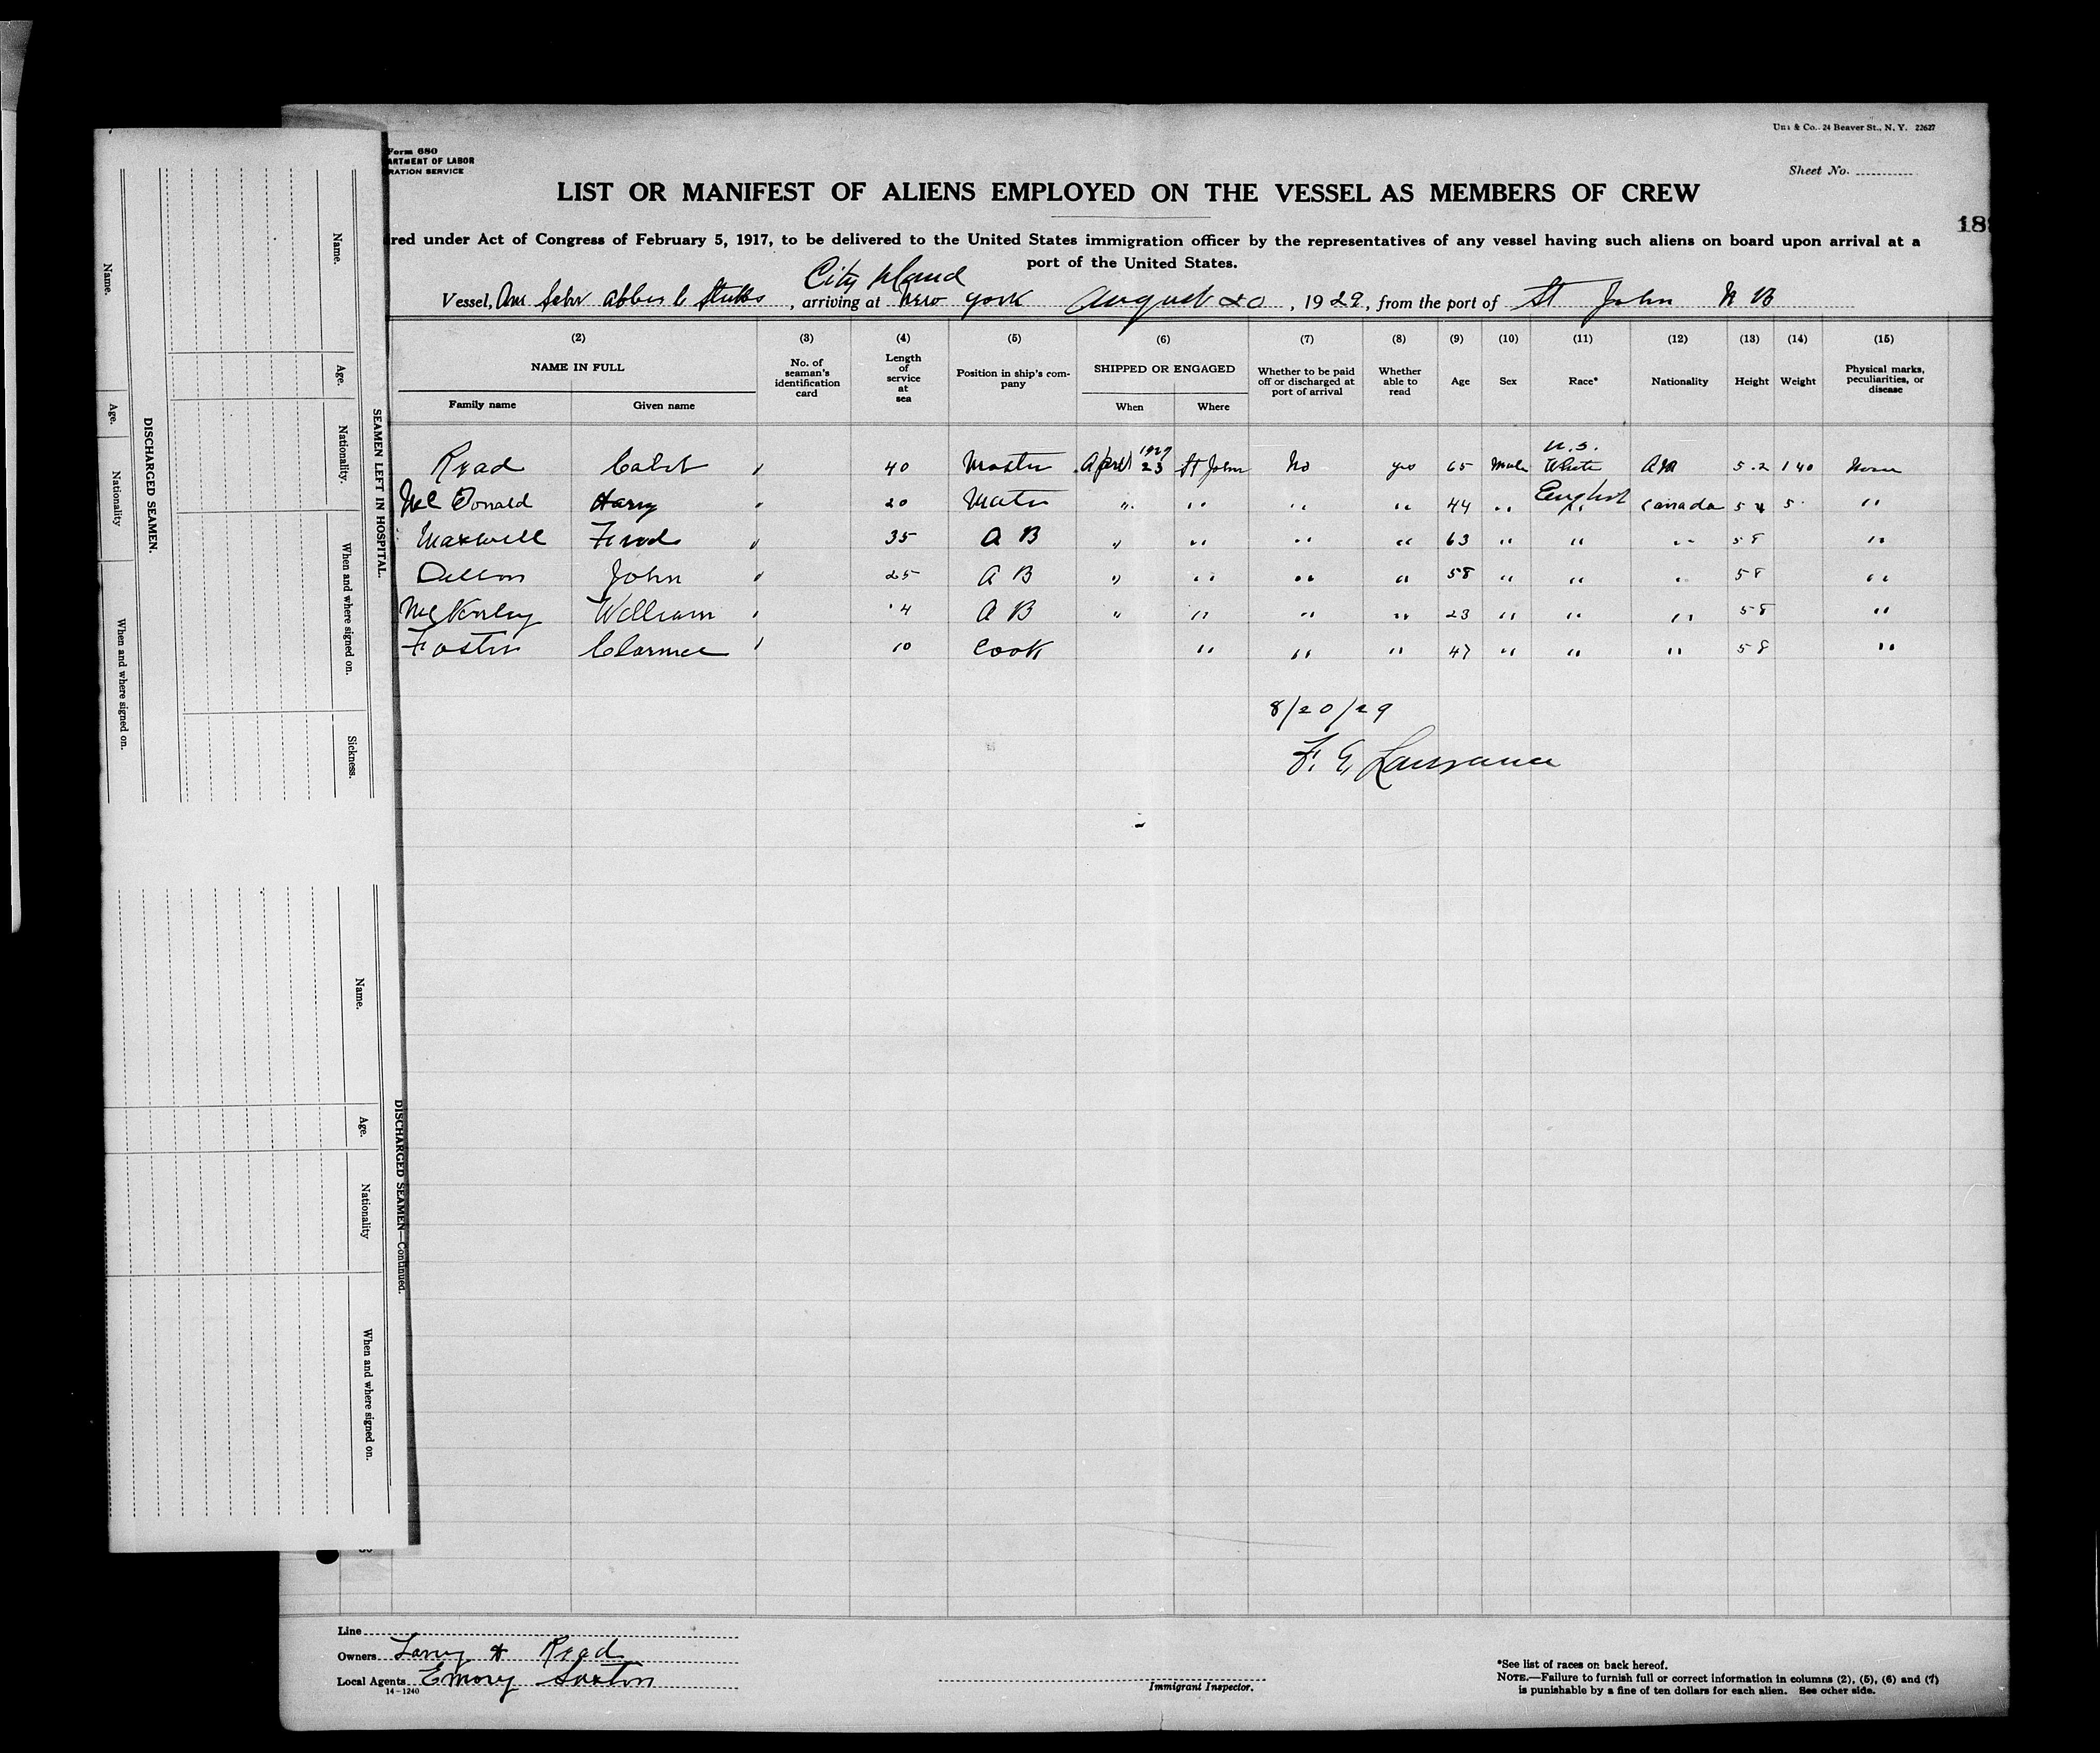 Unz & Co., 24 Beaver St., N. Y. 22627
Form 680
ARTMENT OF LABOR
RATION SERVICE
Sheet No.
LIST OR MANIFEST OF ALIENS EMPLOYED ON THE VESSEL AS MEMBERS OF CREW
18
red under Act of Congress of February 5, 1917, to be delivered to the United States immigration officer by the representatives of any vessel having such aliens on board upon arrival at a
port of the United States.
City Island
Vessel, Am Schr Abbie C Stubbs, arriving at New York August 20, 1929, from the port of St John N B
(2) (3) (4) (5) (6) (7) (8) (9) (10) (11) (12) (13) (14) (15)
NAME IN FULL No. of seaman's identification card Length of service at sea Position in ship's company SHIPPED OR ENGAGED Whether to be paid off or discharged at port of arrival Whether able to read Age Sex Race* Nationality Height Weight Physical marks, peculiarities, or disease
Family name Given name When Where
1929 U.S.
Read Caleb 40 Master April 23 St John No yes 65 Male White 5.2 140 None
McDonald Harry 20 Mate " " " " 44 " English Canada 5 " 
Maxwell 35 A B " " " " 63 " " " 5 8 "
John 25 A B " " " " 58 " " " 5 8 "
William 4 A B " " " " 23 " " " 5 8 "
Foster Clarence 10 Cook " " " 47 " " " 5 8 "
8/20/29
F. E.
Line
Owners & Read
Local Agents Emory Sexton
14-1240
Immigrant Inspector.
*See list of races on back hereof.
NOTE.—Failure to furnish full or correct information in columns (2), (5), (6) and (7)
is punishable by a fine of ten dollars for each alien. See other side.
SEAMEN LEFT IN HOSPITAL.
Name. Age. Nationality. When and where signed on. Sickness.
DISCHARGED SEAMEN.
Name. Age. Nationality When and where signed on.
DISCHARGED SEAMEN—Continued.
Name. Age. Nationality When and where signed on.